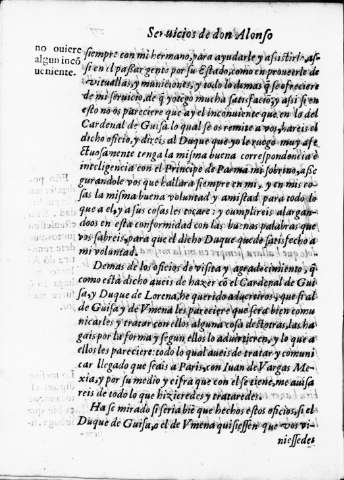 Seruicios de don Alonso
no ouiere
algun incō
ueniente.
siempre con mi hermano, para ayudarle y asistirle, as-
si en el passar gente por su Estado, como en proueerle de
vituallas, y municiones, y todo lo demas q̃ se ofreciere
de mi seruicio, de q̃ yo tẽgo mucha satisfaciõ, y assi si en
esto no os pareciere que ay el inconueniente que en lo del
Cardenal de Guisa lo qual se os remite a vos, hareis el
dicho oficio, y direis al Duque que yo le ruego muy afe
ctuosamente tenga la misma buena correspondencia è
inteligencia con el Principe de Parma mi sobrino, asse
gurandole vos que hallara siempre en mi, y en mis co-
sas la misma buena voluntad y amistad para todo lo
que a el, y a sus cosas les tocare: y cumplireis alargan-
doos en esta conformidad con las buenas palabras que
vos sabreis, para que el dicho Duque quede satisfecho a
mi voluntad.
Demas de los oficios de visita y agradecimiento, q̃
como està dicho aueis de hazer cõ el Cardenal de Gui-
sa, y Duque de Lorena, he querido aduertiros, que si al
de Guisa y de Vmena les pareciere que serà bien comu
nicarles y tratar con ellos alguna cosa destotras, las ha-
gais por la forma y segun ellos lo aduirtieren, y lo que a
ellos les pareciere: todo lo qual aueis de tratar y comuni
car llegado que seais a Paris, con Iuan de Vargas Me-
xia, y por su medio y cifra que con el se tiene, me auisa
reis de todo lo que hizieredes y trataredes.
Ha se mirado si seria biẽ que hechos estos oficios, si el
Duque de Guisa, o el de Vmena quisiessen que vos vi-
niessedes